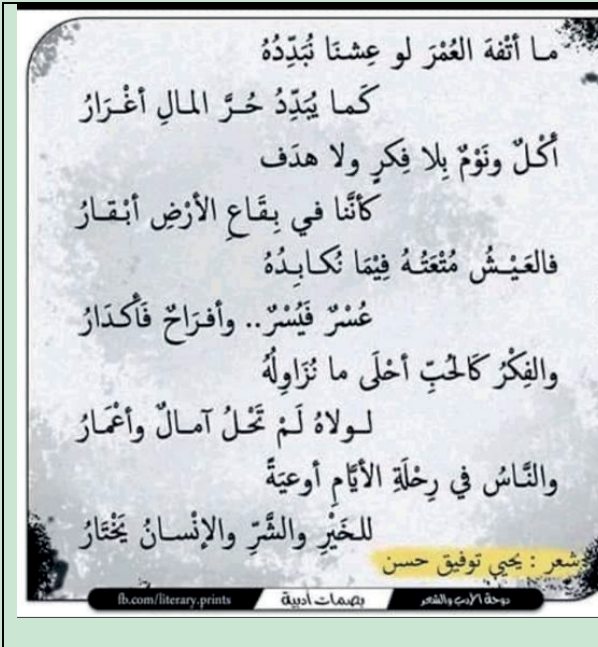 مـا أتْفهَ العُمْرَ لو عِشنَا نُبَدِّدُهُ
كَما يُبَدِّدُ حُـرَّ المـالِ أغْـرَارُ
أكْـلٌ ونَوْمٌ بِلا فِكرٍ ولا هدَف
كأنَّنا في بِقَـاعِ الأرْضِ أبْـقـارُ
فالعَيْـشُ مُتْعَتُـهُ فِيْمَا نُكـابِـدُهُ
عُسْرٌ فَيُسْرٌ.. وأفـرَاحٌ فَأكـدَارُ
والفِكْرُ كَالحُبِّ أحْلَى ما نُزَاوِلُهُ
لـولاهُ لَـمْ تَحْـلُ آمـالٌ وأعْمَـارُ
والنَّاسُ في رِحْلَةِ الأيَّامِ أوعيَةً
للخَيْرِ والشَّرِّ والإنْسـانُ يَخْتَارُ
شعر : يحيى توفيق حسن
دوحة الأدب والشعر
بصمات أدبية
fb.com/literary.prints